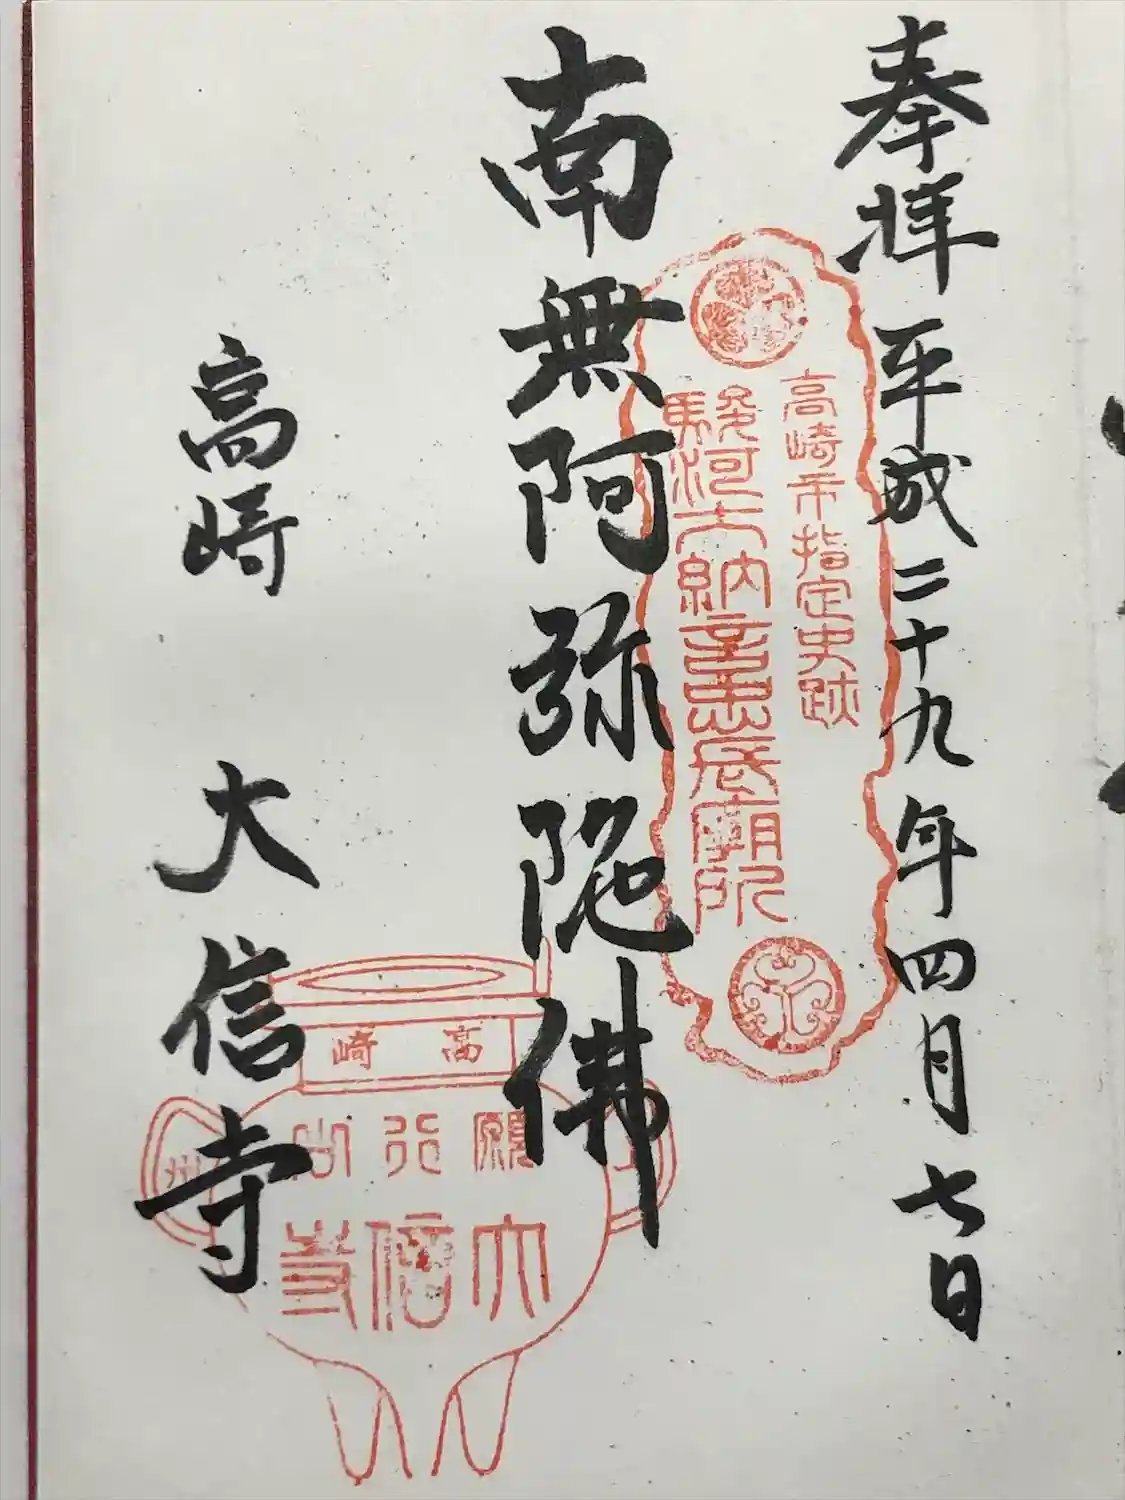 奉拝 平成二十九年四月七日
高崎市指定史跡
駿河大納言忠長廟所
南無阿弥陀佛
高崎 大信寺
高崎
願行山
大信寺
上州